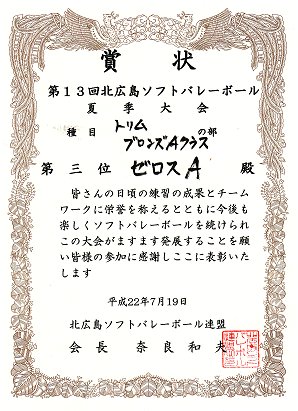 賞状
第13回北広島ソフトバレーボール
夏季大会
種目 トリム
ブロンズAクラス の部
第三位 ゼロスA 殿
皆さんの日頃の練習の成果とチーム
ワークに栄誉を称えるとともに今後も
楽しくソフトバレーボールを続けられ
この大会がますます発展することを願
い皆様の参加に感謝しここに表彰いた
します
平成22年7月19日
北広島ソフトバレーボール連盟
会長 奈良和夫